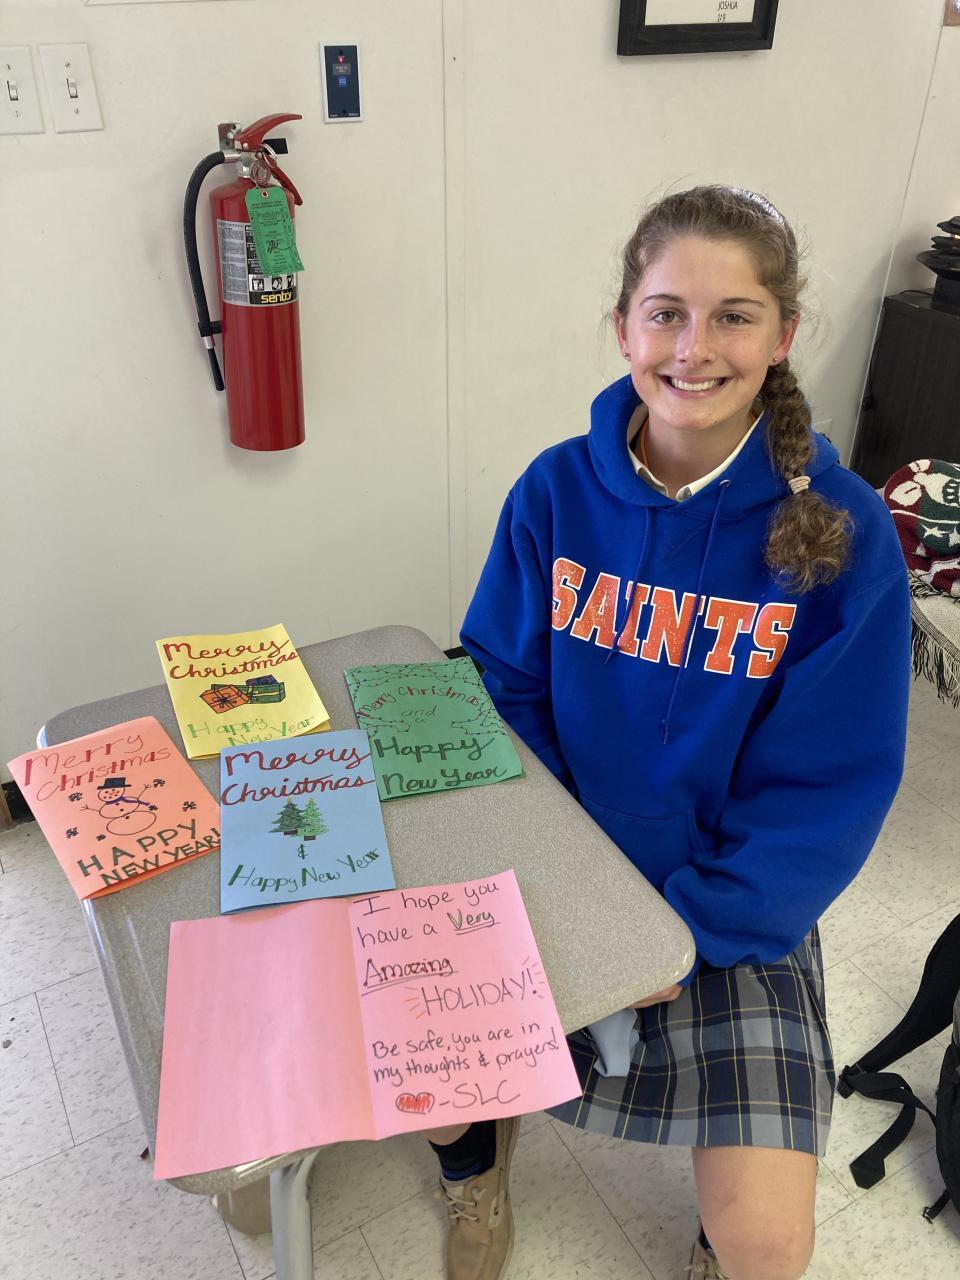 JOSHUA
1:9
sentry
SAINTS
Merry
Christmas
Happy
New Year
Merry Christmas
and
a
Happy
New Year
Merry
Christmas
HAPPY
NEW YEAR!
Merry
Christmas
&
Happy New Year
I hope you
have a Very
Amazing
HOLIDAY!
Be safe, you are in
my thoughts & prayers!
-SLC